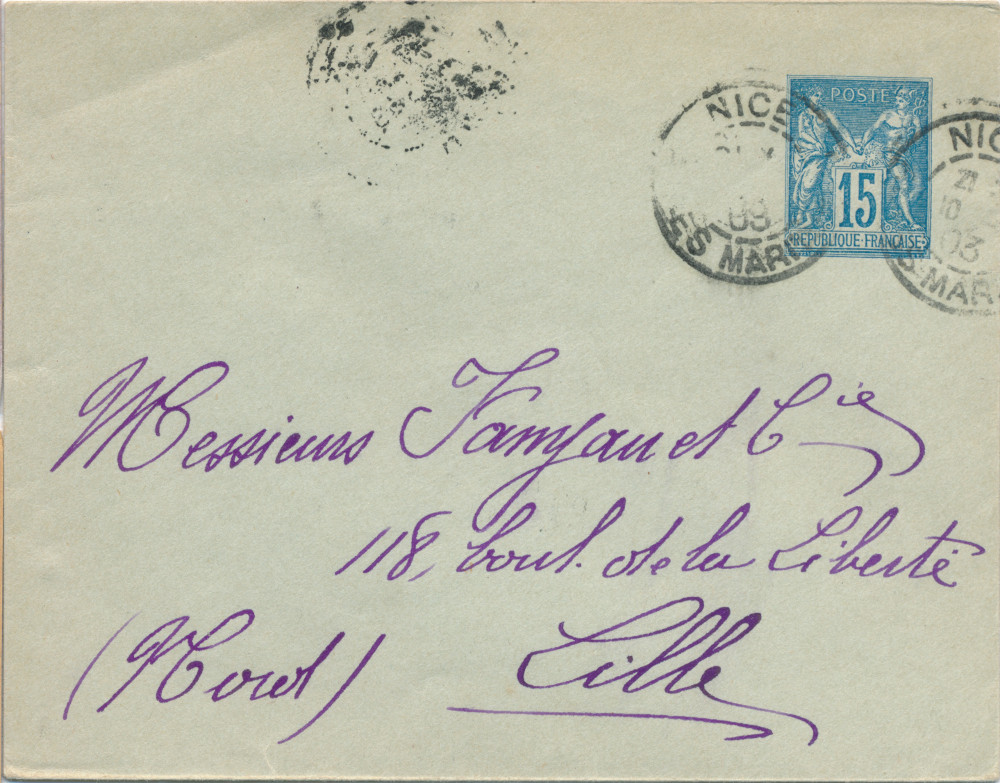 NICE
POSTE
15
REPUBLIQUE FRANÇAISE
03
ES MAR
NIC
21
10
03
S MAR
Messieurs et Cie
118, boul. de la Liberté
(Nord) Lille